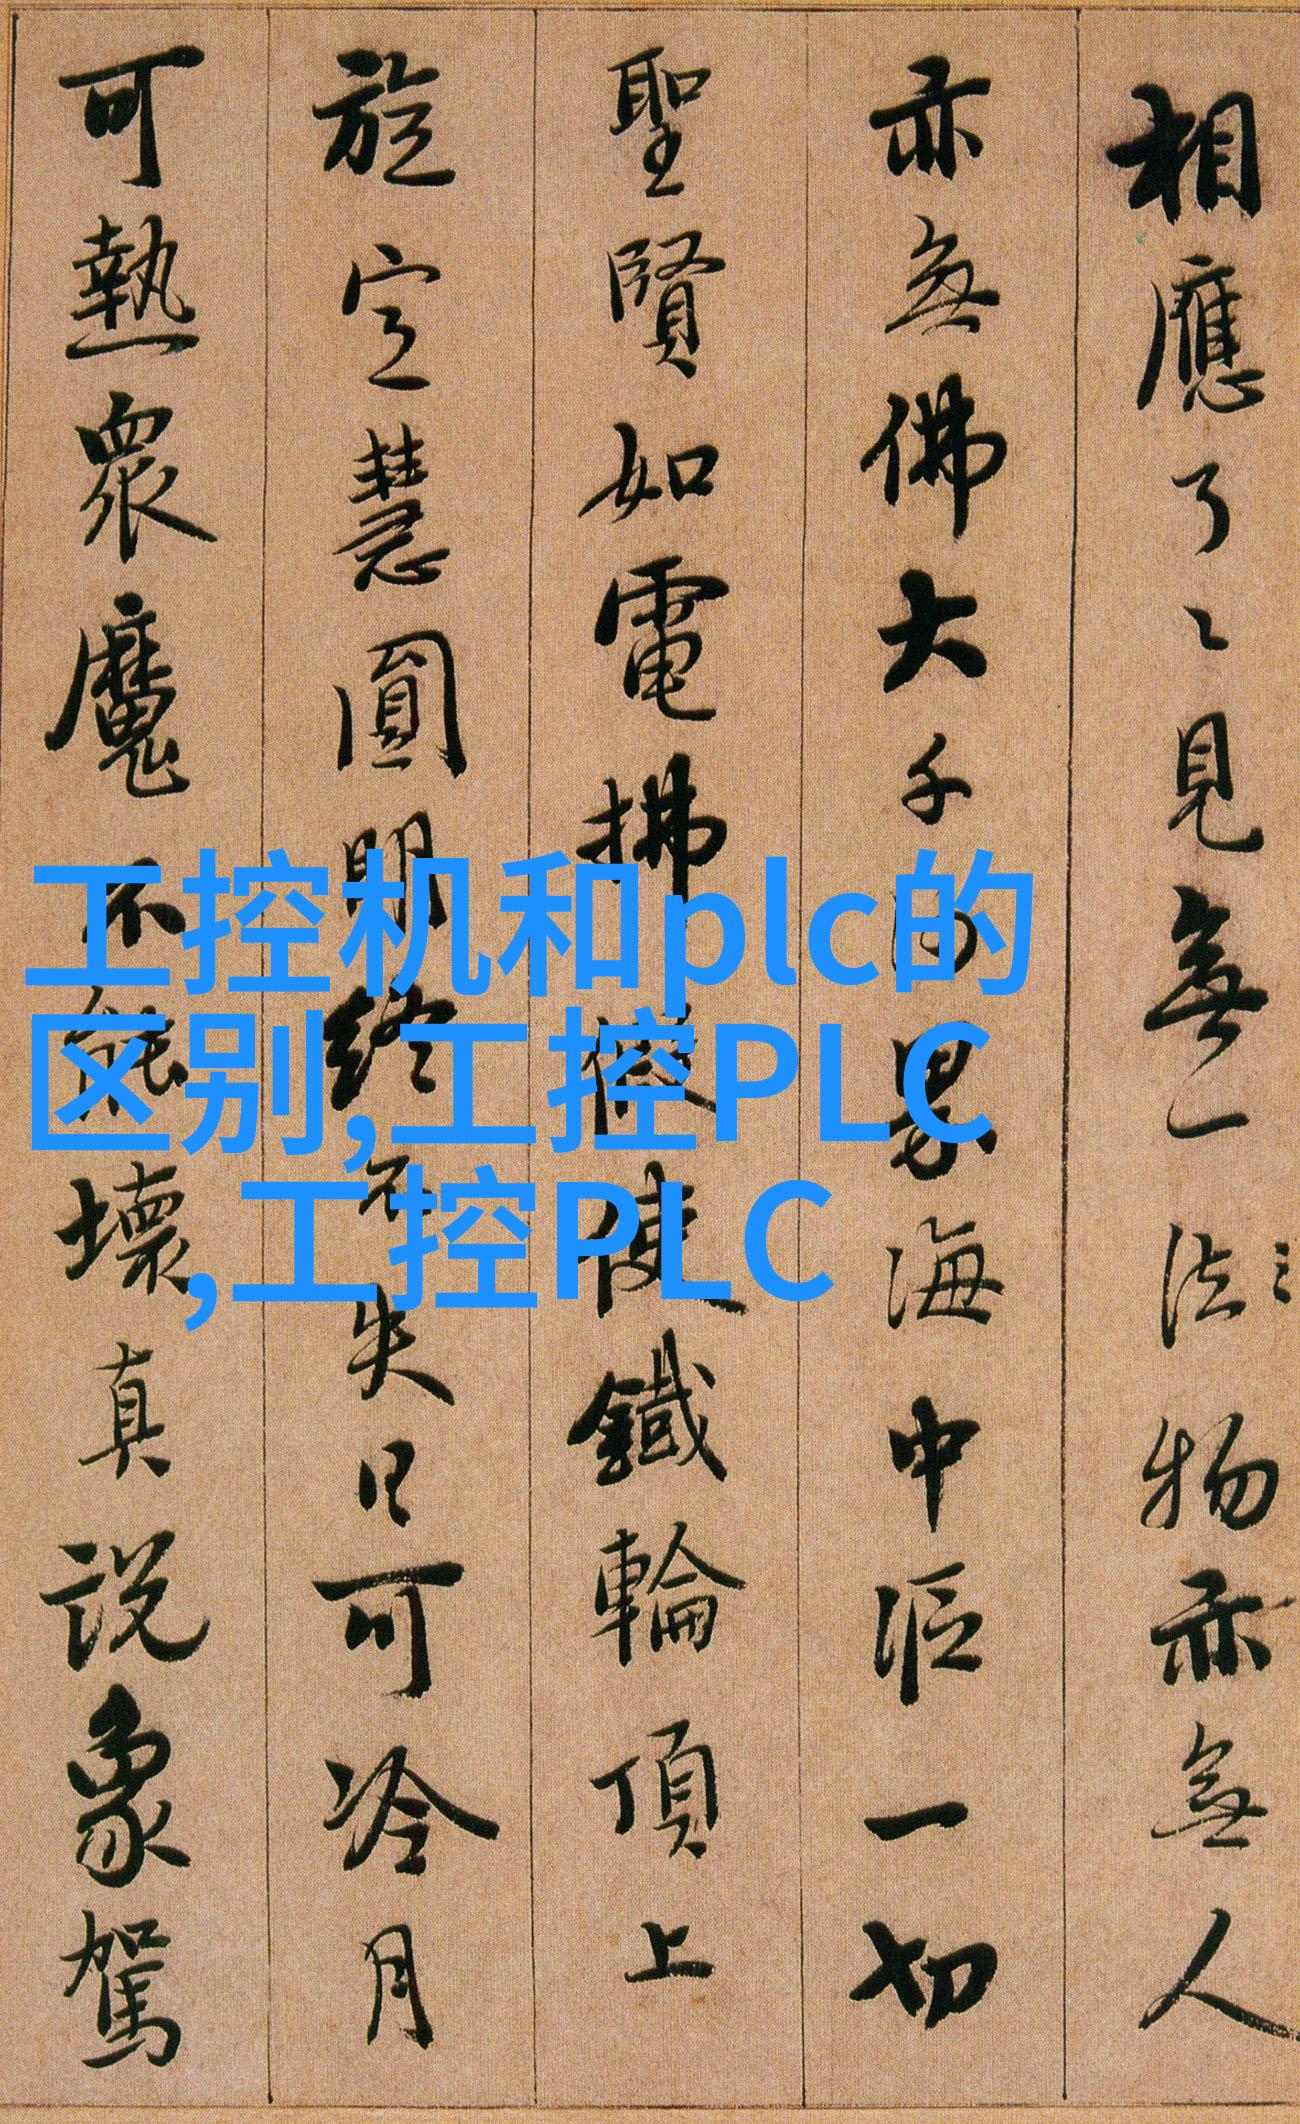 相應了〻見無一法物亦無人
亦無佛大千沙界海中漚一切
聖賢如電拂假使鐵輪頂上
旋定慧圓明終不失日可冷月
可熱衆魔不能壞真說象駕
工控机和plc的
区别,工控PLC
,工控PLC